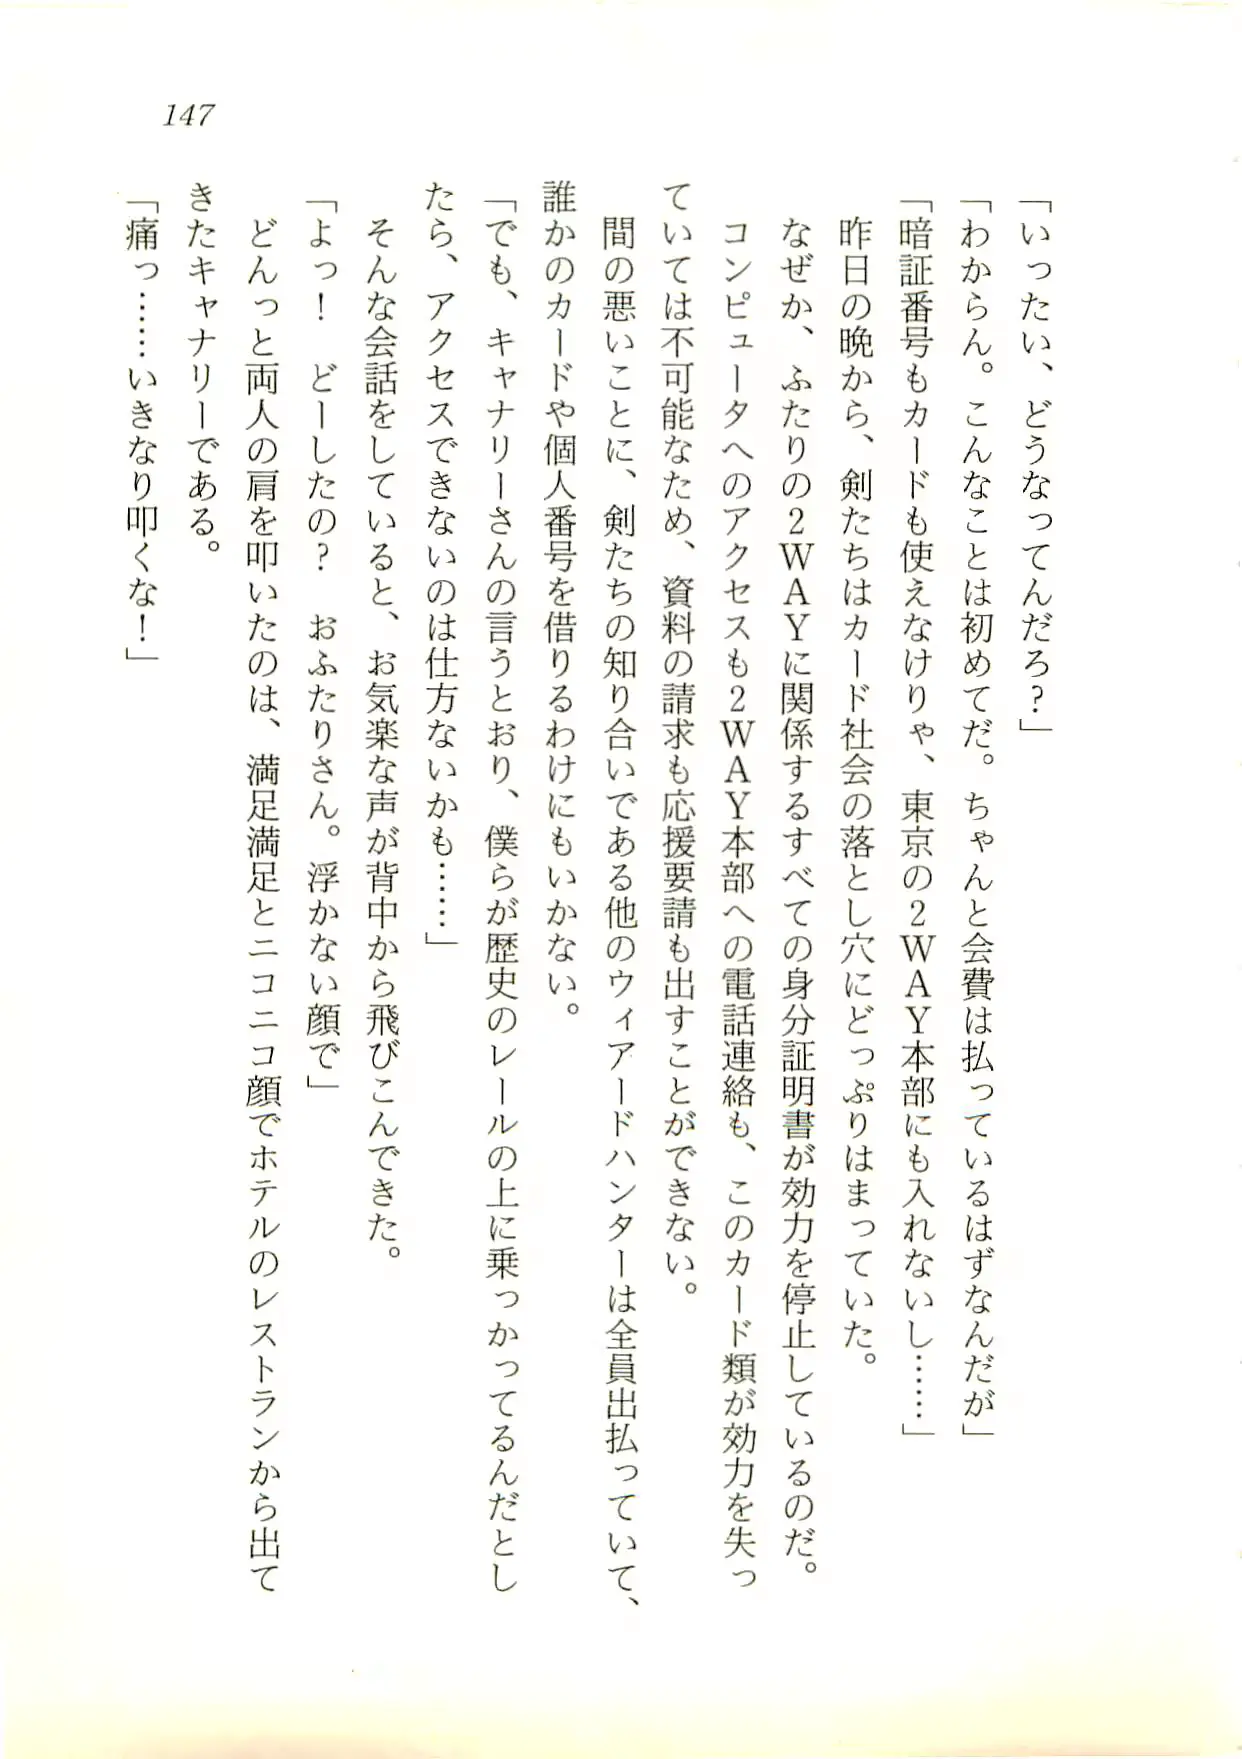 147
「いったい、どうなってんだろ？」
「わからん。こんなことは初めてだ。ちゃんと会費は払っているはずなんだが」
「暗証番号もカードも使えなけりゃ、東京の２ＷＡＹ本部にも入れないし……」
昨日の晩から、剣たちはカード社会の落とし穴にどっぷりはまっていた。
なぜか、ふたりの２ＷＡＹに関係するすべての身分証明書が効力を停止しているのだ。
コンピュータへのアクセスも２ＷＡＹ本部への電話連絡も、このカード類が効力を失っ
ていては不可能なため、資料の請求も応援要請も出すことができない。
間の悪いことに、剣たちの知り合いである他のウィアードハンターは全員出払っていて、
誰かのカードや個人番号を借りるわけにもいかない。
「でも、キャナリーさんの言うとおり、僕らが歴史のレールの上に乗っかってるんだとし
たら、アクセスできないのは仕方ないかも……」
そんな会話をしていると、お気楽な声が背中から飛びこんできた。
「よっ！　どーしたの？　おふたりさん。浮かない顔で」
どんっと両人の肩を叩いたのは、満足満足とニコニコ顔でホテルのレストランから出て
きたキャナリーである。
「痛っ……いきなり叩くな！」